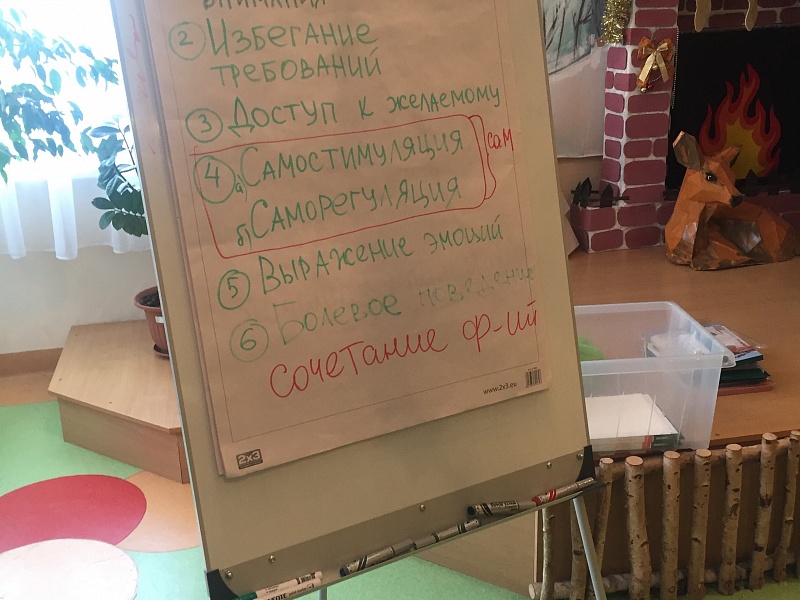 внимания
② Избегание
требований
③ Доступ к желаемому
④ а) Самостимуляция
б) Саморегуляция
сам
⑤ Выражение эмоций
⑥ Болевое поведение
сочетание ф-ий
www.2x3.eu
2x3